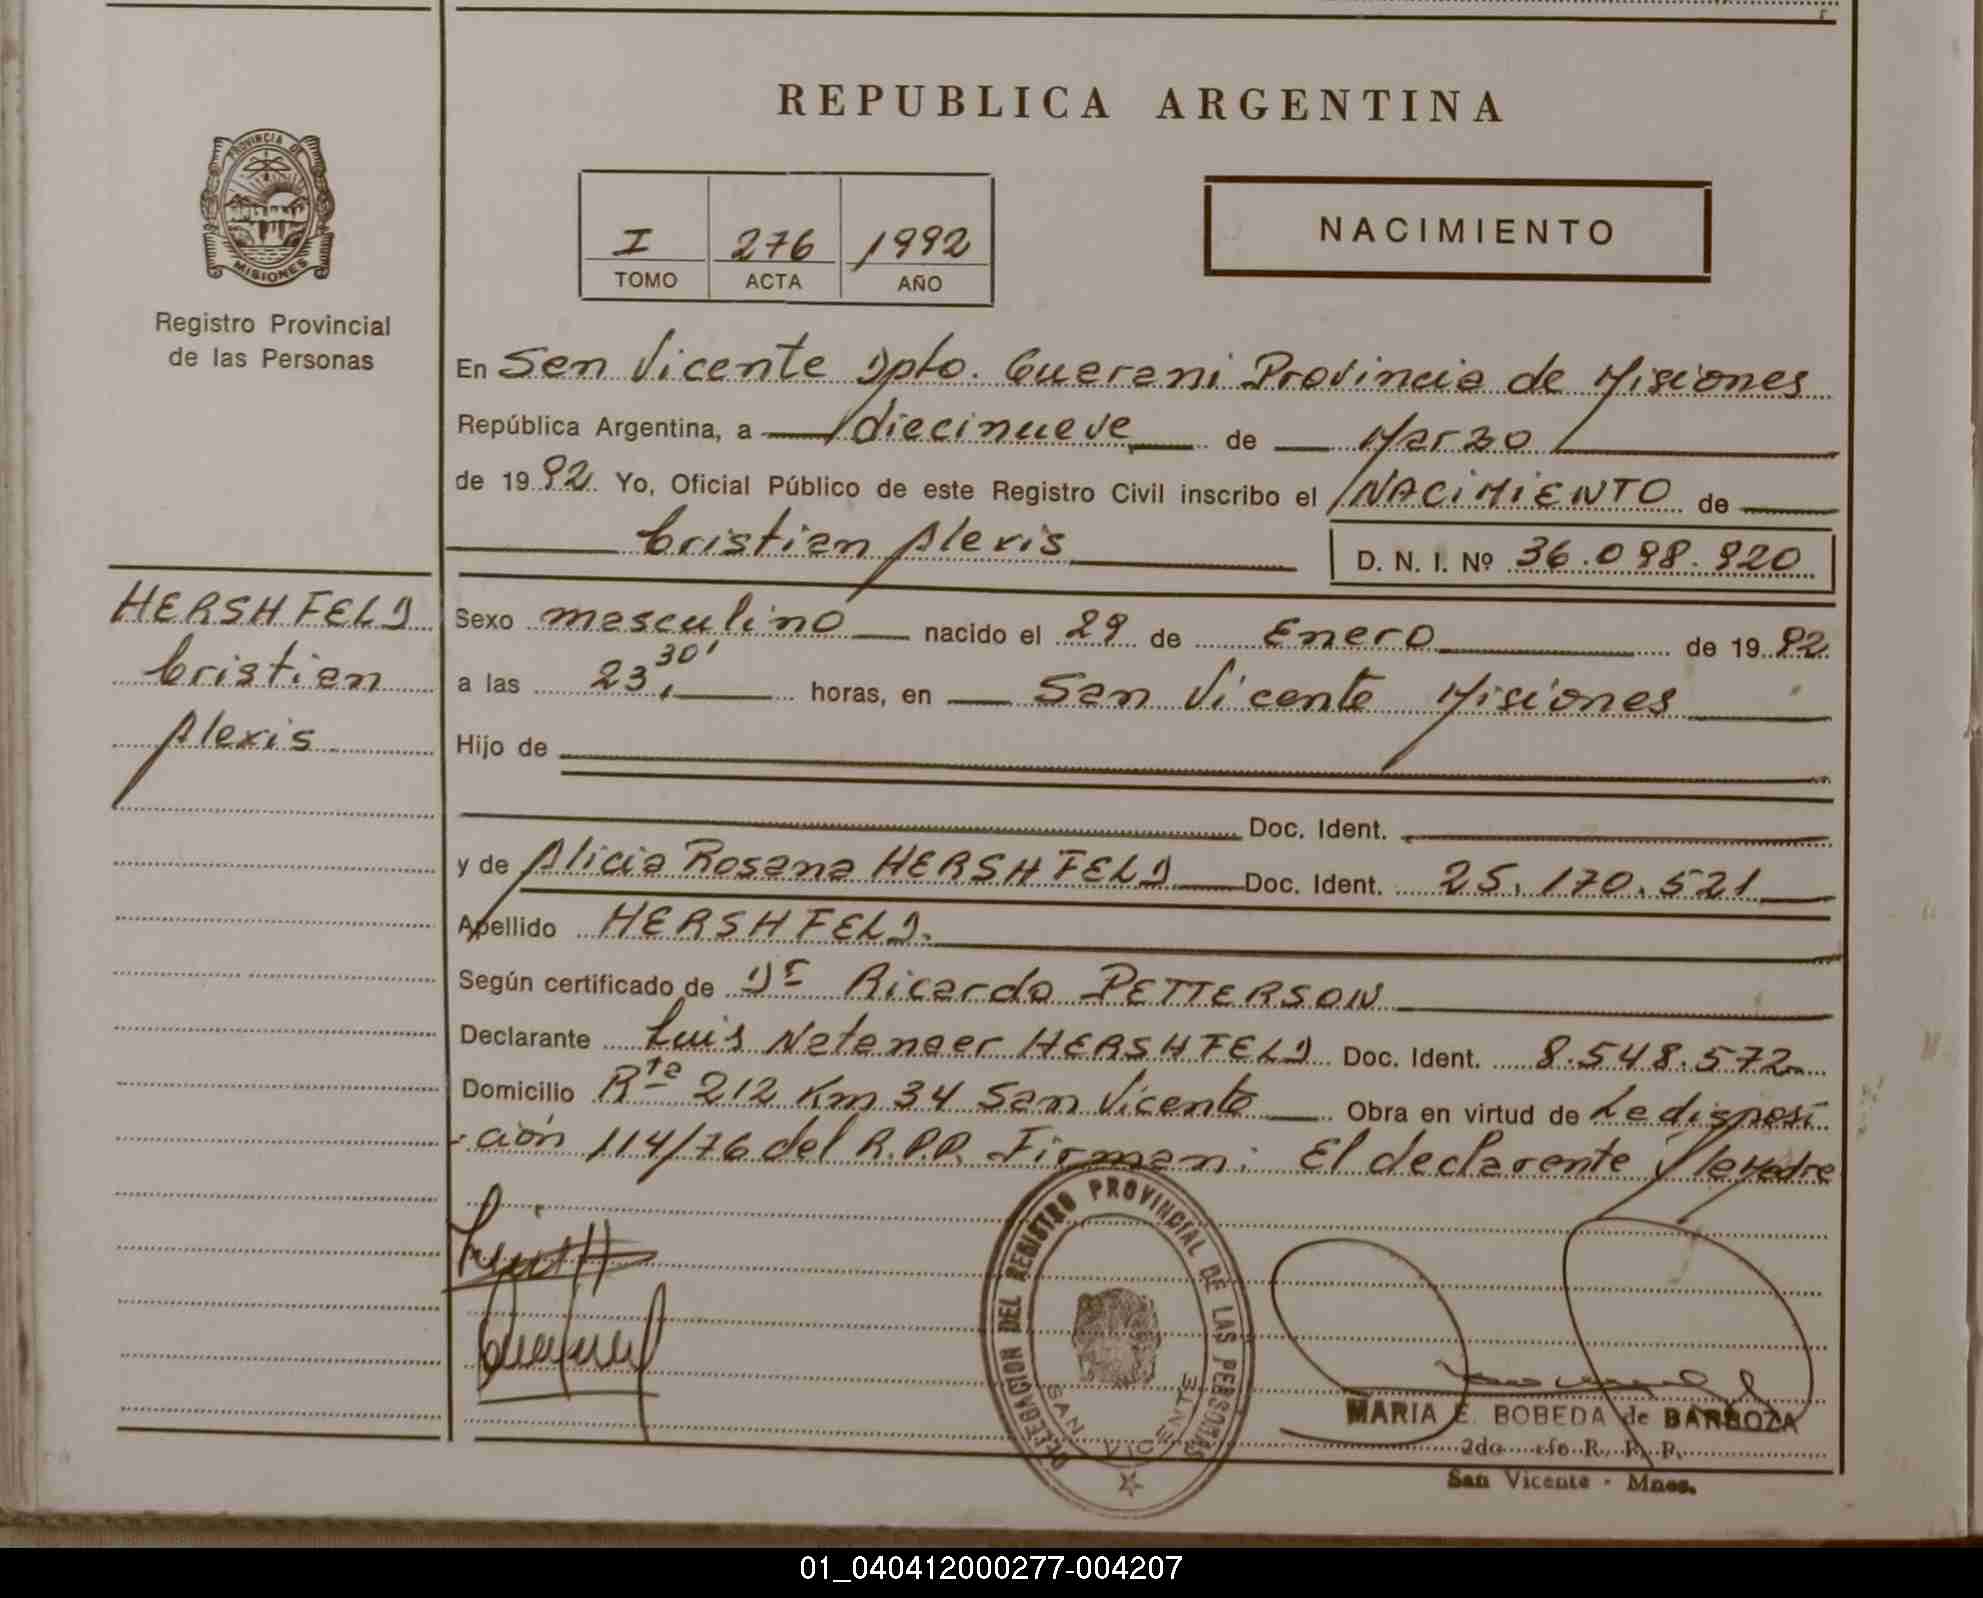 REPUBLICA ARGENTINA
PROVINCIA DE
MISIONES
Registro Provincial
de las Personas
I 276 1992
TOMO ACTA AÑO
NACIMIENTO
En San Vicente Dpto. Guarani Provincia de Misiones
República Argentina, a diecinueve de Marzo
de 1992. Yo, Oficial Público de este Registro Civil inscribo el NACIMIENTO de
Cristian Alexis
D. N. I. Nº 36.098.920
HERSHFELD
Cristian
Alexis
Sexo masculino nacido el 29 de Enero de 1992.
a las 23,30' horas, en San Vicente Misiones
Hijo de
Doc. Ident.
y de Alicia Rosana HERSHFELD Doc. Ident. 25.170.521
Apellido HERSHFELD.
Según certificado de Dr Ricardo PETTERSON
Declarante Luis Natanaer HERSHFELD Doc. Ident. 8.548.572
Domicilio Rta 212 Km 34 San Vicente Obra en virtud de La disposi
-ción 114/76 del R.P.P. Firman: El declarante y la Madre
DELEGACION DEL REGISTRO PROVINCIAL DE LAS PERSONAS
SAN VICENTE
MARIA E. BOBEDA de BARBOZA
2do R. P. P.
San Vicente - Mnes.
01_040412000277-004207